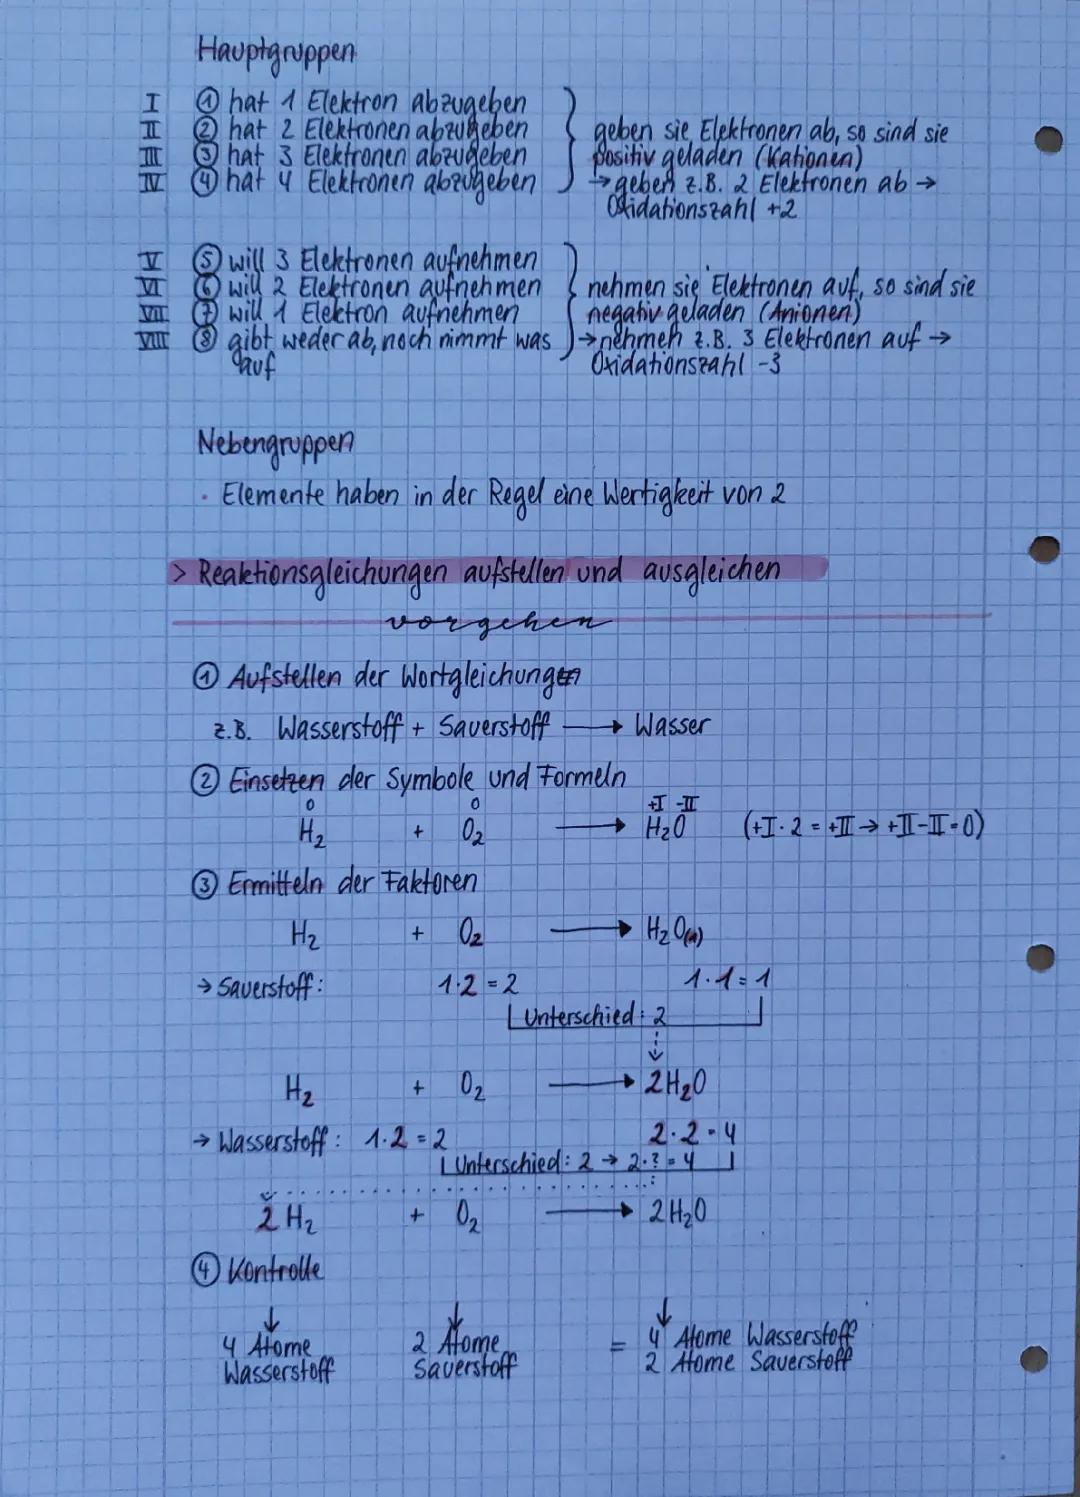 Hauptgruppen
I ① hat 1 Elektron abzugeben
II ② hat 2 Elektronen abzugeben
III ③ hat 3 Elektronen abzugeben
IV ④ hat 4 Elektronen abzugeben
geben sie Elektronen ab, so sind sie
positiv geladen (Kationen)
→ geben z.B. 2 Elektronen ab →
Oxidationszahl +2
V ⑤ will 3 Elektronen aufnehmen
VI ⑥ will 2 Elektronen aufnehmen
VII ⑦ will 1 Elektron aufnehmen
VIII ⑧ gibt weder ab, noch nimmt was
auf
nehmen sie Elektronen auf, so sind sie
negativ geladen (Anionen)
→ nehmen z.B. 3 Elektronen auf →
Oxidationszahl -3
Nebengruppen
· Elemente haben in der Regel eine Wertigkeit von 2
> Reaktionsgleichungen aufstellen und ausgleichen
vorgehen
① Aufstellen der Wortgleichung
z.B. Wasserstoff + Sauerstoff → Wasser
② Einsetzen der Symbole und Formeln
0 0 +I -II
H₂ + O₂ → H₂O (+I · 2 = +II → +II-II=0)
③ Ermitteln der Faktoren
H₂ + O₂ → H₂O(1)
→ Sauerstoff: 1·2=2 1·1=1
Unterschied: 2
H₂ + O₂ → 2H₂O
→ Wasserstoff: 1·2=2 2·2=4
Unterschied: 2 → 2·?=4
2 H₂ + O₂ → 2H₂O
④ Kontrolle
↓ ↓ ↓
4 Atome 2 Atome = 4 Atome Wasserstoff
Wasserstoff Sauerstoff 2 Atome Sauerstoff